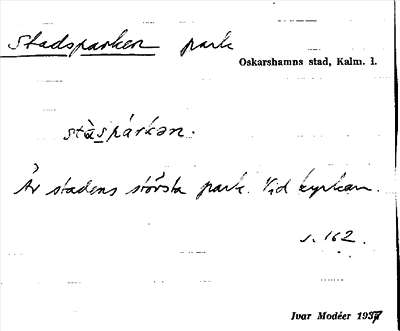 Stadsparken park
Oskarshamns stad, Kalm. l.
stàspárkən.
Är stadens största park. Vid kyrkan.
s. 162.
Ivar Modéer 1937